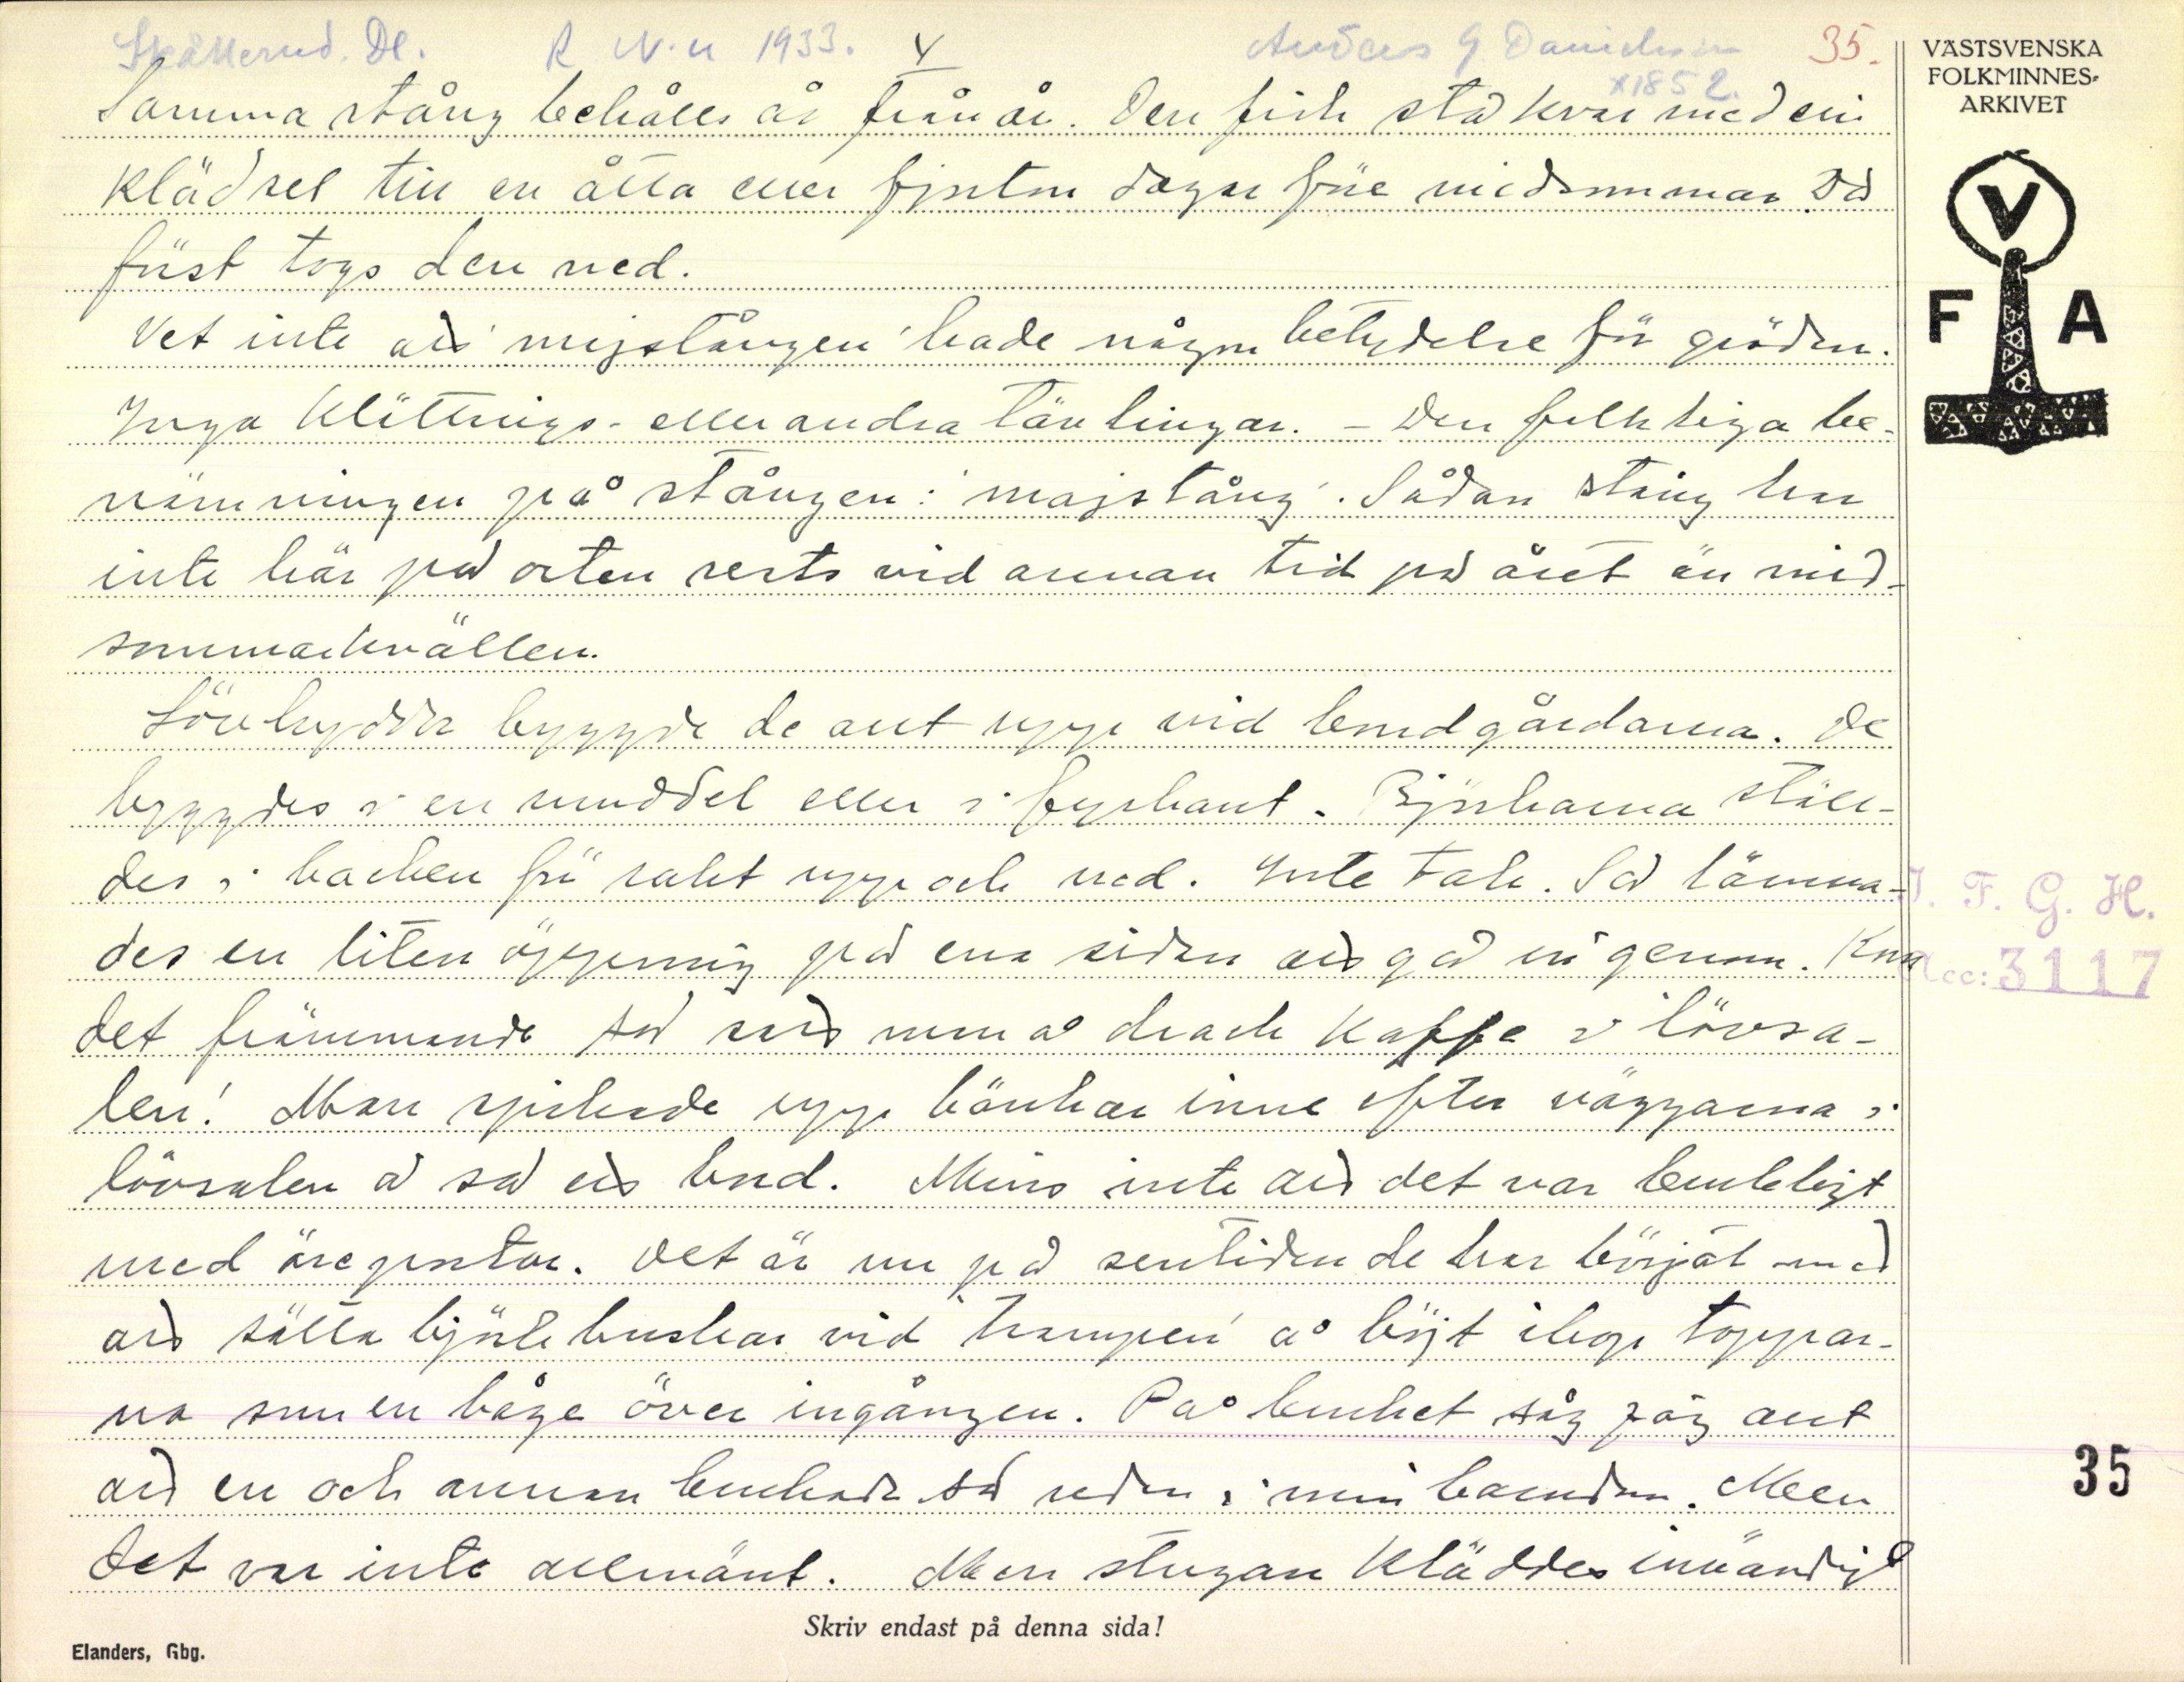 Skållerud. Dl. R N-n 1933. 4 Anders G Danielsson 35.
*1852.
VÄSTSVENSKA
FOLKMINNES-
ARKIVET
V
F A
Samma stång behålls år från år. Den fick stå kvar med sin
klädsel till en åtta eller fjorton dagar före midsommar. Då
först togs den ned.
Vet inte att 'majstången' hade någon betydelse för gröden.
Inga klättrings- eller andra tävlingar. - Den folkliga be-
nämningen på stången: 'majstång'. Sådan stång har
inte här på orten rests vid annan tid på året än mid-
sommarkvällen.
Lövhyddor byggde de allt uppe vid bondgårdarna. De
byggdes i en ruddel eller i fyrkant. Björkarna ställ-
des i backen för rakt upp och ned. Inte tak. Så lämna-
des en liten öppning på ena sidan att gå in genom. Kom
det främmande så satt man å drack kaffe i lövsa-
len! Man spikade upp bänkar inne efter väggarna i
lövsalen å så ett bord. Minns inte att det var brukligt
med äreportar. Det är nu på sentiden de har börjat med
att sätta björkbuskar vid 'trampen' å böjt ihop toppar-
na som en båge över ingången. På bruket såg jag allt
att en och annan brukade så redan i min barndom. Men
det var inte allmänt. Men stugan kläddes invändigt
I. F. G. H.
Acc: 3117
35
Skriv endast på denna sida!
Elanders, Gbg.